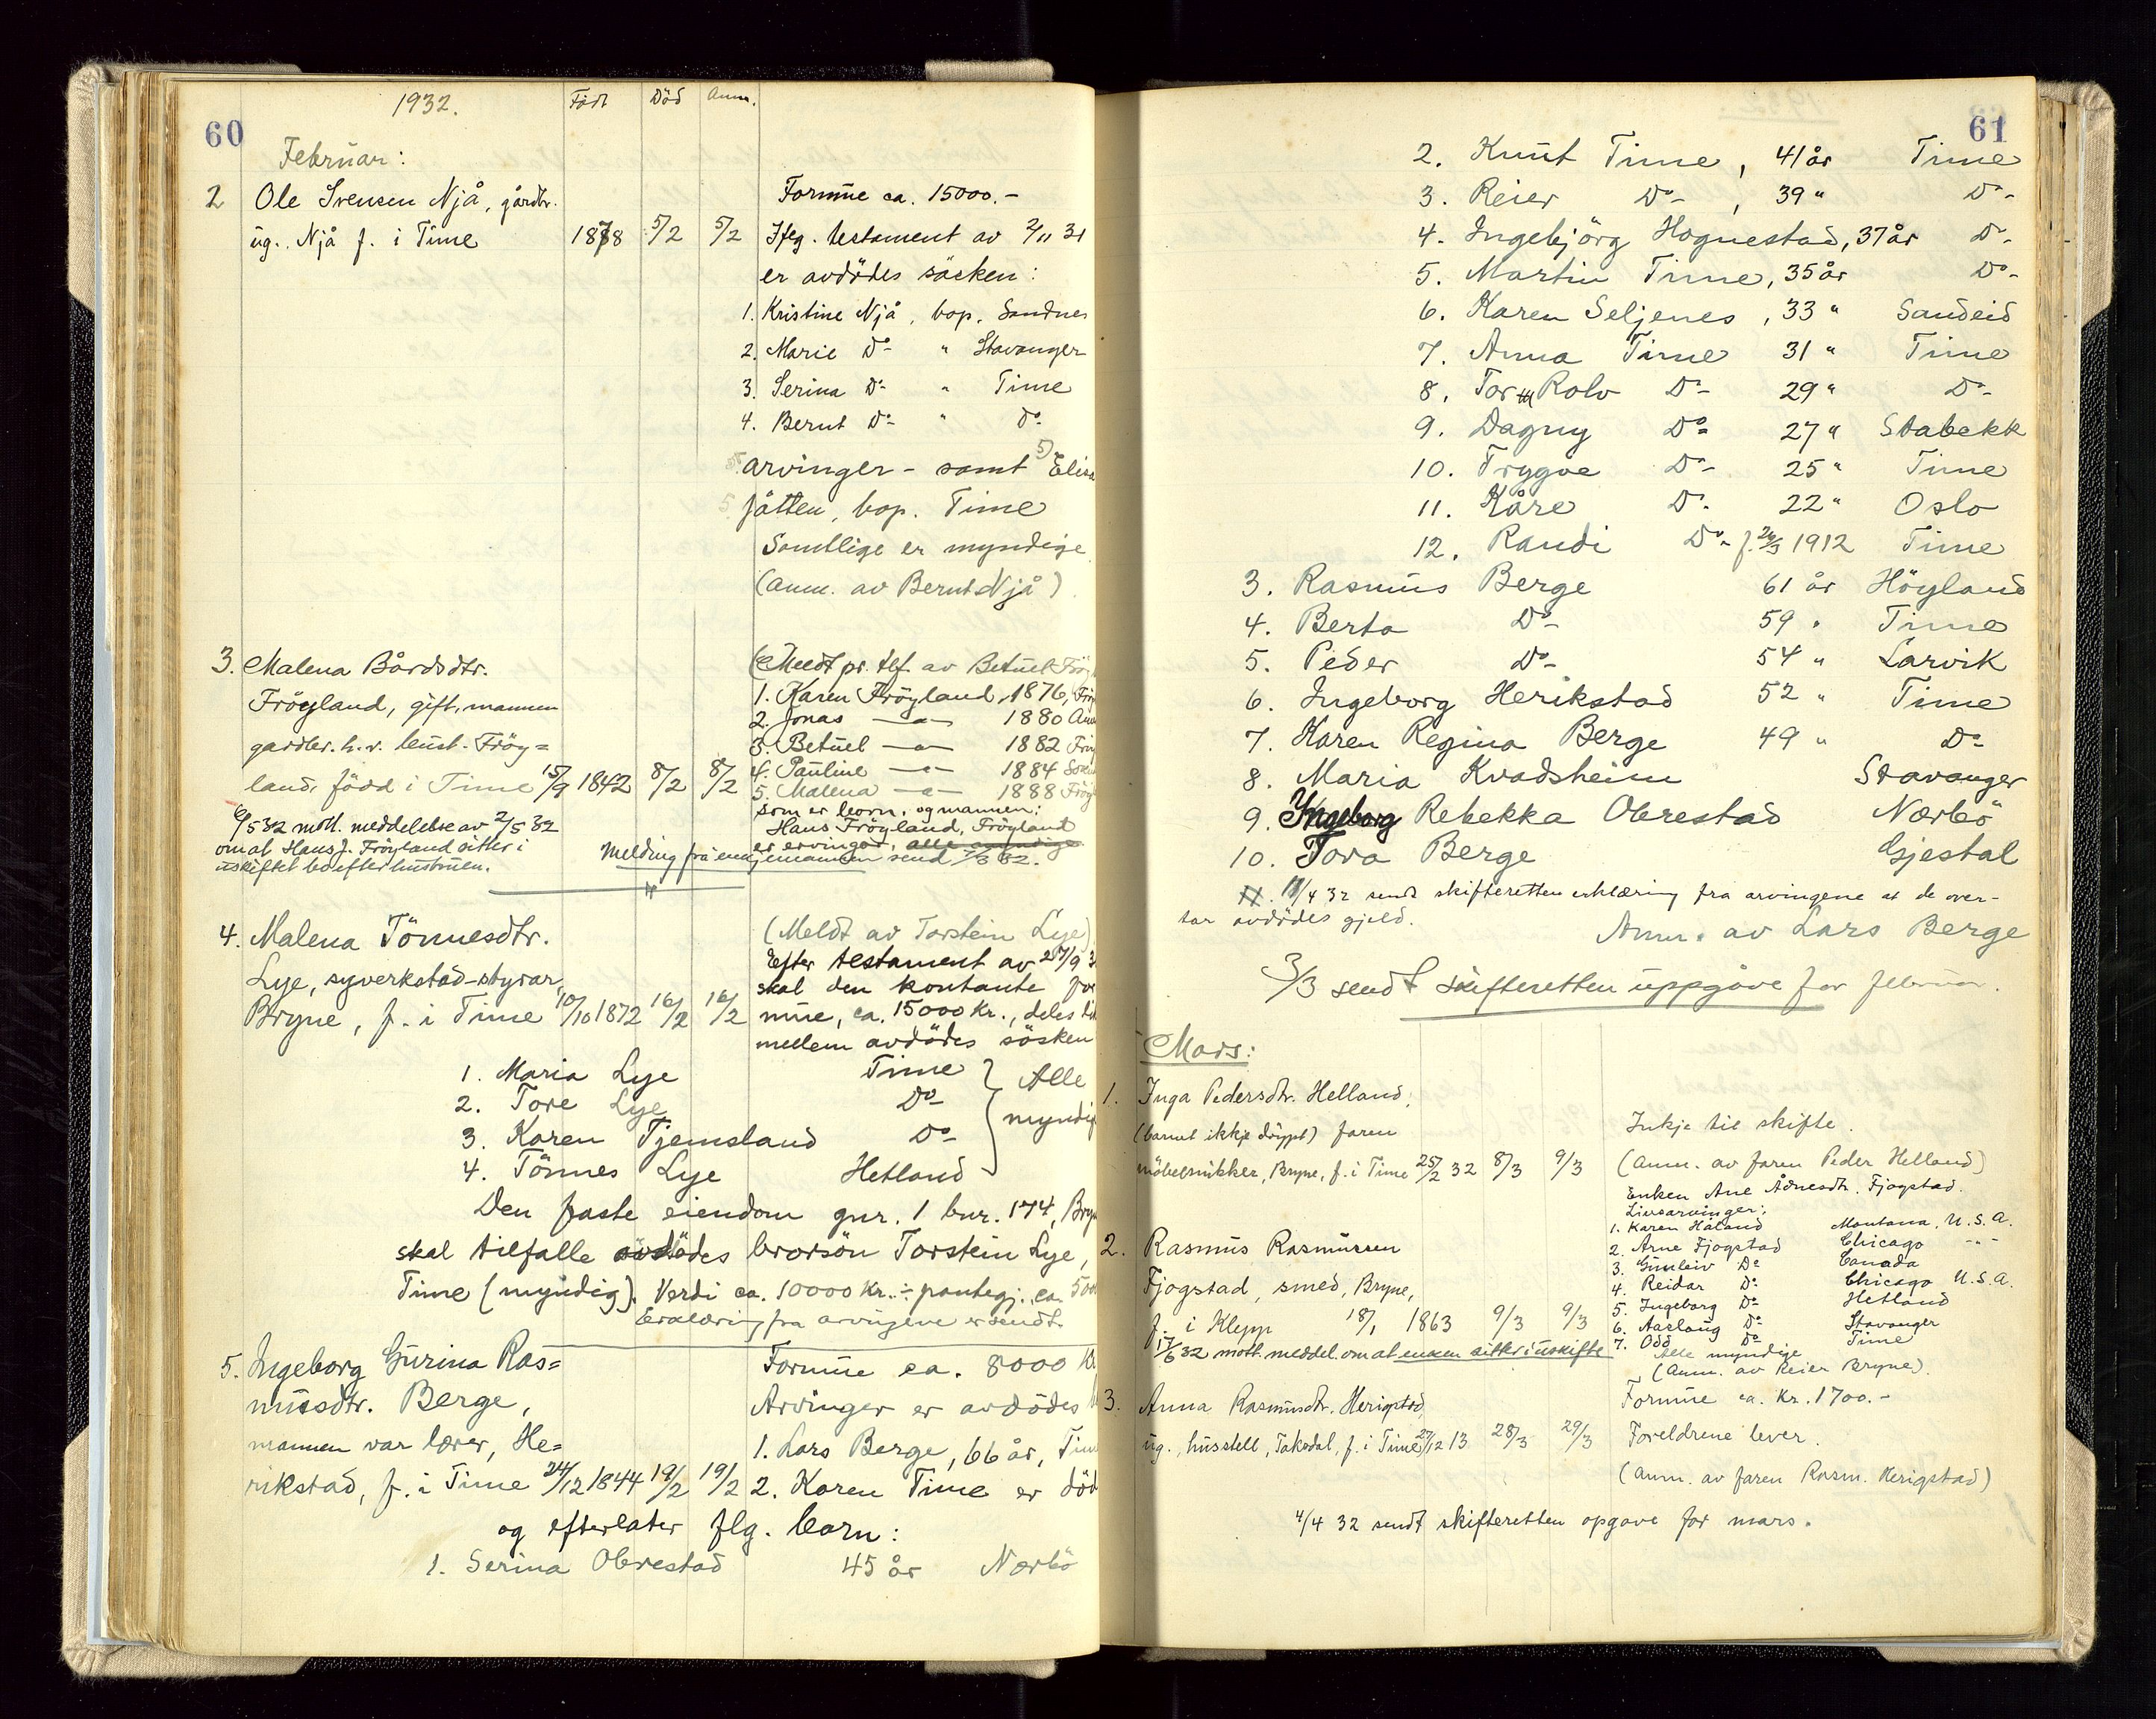 60
1932.
Født Död Anm.
Februar:
2 Ole Svensen Njå, gårdbr. Formue ca. 15000.-
ug. Njå f. i Time 1878 5/2 5/2 Iflg. testament av 2/11 31
er avdödes sösken:
1. Kristine Njå, bop. Sandnes
2. Marie Do- " Stavanger
3. Serina Do- " Time
4. Bernt Do- " Do-
arvinger - samt 5) Elisa
Jåtten, bop. Time
Samtlige er myndige
(Anm. av Bernt Njå).
3. Malena Bårdsdtr. (Meldt pr. tlf. av Betuel Fröyl
Fröyland, gift, mannen 1. Karen Fröyland, 1876, Fröy
2. Jonas -"- 1880
gardbr. h.v. bust. Fröy= 3. Betuel -"- 1882 Fröy
4. Pauline -"- 1884
land, fødd i Time 15/9 1842 8/2 8/2 5. Malena -"- 1888 Fröy
som er born, og mannen:
6/5 32 mott. meddelelse av 2/5 32 Hans Fröyland, Fröyland
om at Hans J. Fröyland sitter i er ervingar, alle myndige
uskiftet bo efter hustruen. Melding frå enkjemannen send 7/3 32.
4. Malena Tönnesdtr. (Meldt av Torstein Lye)
Lye, syverkstad-styrar, Efter testament av 27/9 3
skal den kontante for
Bryne, f. i Time 10/10 1872 16/2 16/2 mue, ca. 15000 kr., deles li
mellem avdödes sösken
1. Maria Lye Time } Alle
2. Tore Lye Do-
3. Karen Tjemsland Do- myndig
4. Tönnes Lye Hetland
Den faste eiendom gnr. 1 bnr. 174, Bryn
skal tilfalle avdödes brorsön Torstein Lye,
Time (myndig). Verdi ca. 10000 kr. ÷ pantegj. ca. 500
Erklæring fra arvingene er sendt.
5. Ingeborg Gurina Ras= Formue ca. 8000 k
mussdtr. Berge, Arvinger er avdödes
mannen var lærer, He= 1. Lars Berge, 66 år, Tim
rikstad, f. i Time 24/12 1844 19/2 19/2 2. Karen Time er död
og efterlater flg. born:
1. Serina Obrestad 45 år Nærbö
61
2. Knut Time, 41 år Time
3. Reier Do-, 39 " Do-
4. Ingebjörg Hognestad, 37 år Do-
5. Martin Time, 35 år Do-
6. Karen Seljenes, 33 " Sandeid
7. Anna Time 31 " Time
8. Tor Rolv Do- 29 " Do-
9. Dagny Do- 27 " Stabekk
10. Trygve Do- 25 " Time
11. Kåre Do- 22 " Oslo
12. Randi Do- f. 26/3 1912 Time
3. Rasmus Berge 61 år Höyland
4. Berta Do- 59 " Time
5. Peder Do- 54 " Larvik
6. Ingeborg Herikstad 52 " Time
7. Karen Regina Berge 49 " Do-
8. Maria Kvadsheim Stavanger
9. Ingeborg Rebekka Obrestad Nærbö
10. Tora Berge Gjestal
11. 11/4 32 sendt skifteretten erklæring fra arvingene at de over-
tar avdödes gjeld.
Anm. av Lars Berge
3/3 sendt skifteretten uppgåve for februar.
Mars:
1. Inga Pedersdtr. Helland,
(barnet ikkje döypt) faren Inkje til skifte.
möbelsnikker, Bryne, f. i Time 25/2 32 8/3 9/3 (Anm. av faren Peder Helland)
Enken Ane Ådnesdtr. Fjogstad.
Livsarvinger:
1. Karen Håland Montana, U.S.A.
2. Rasmus Rasmussen 2. Arne Fjogstad Chicago -"-
3. Gunleiv Do- Canada
Fjogstad, smed, Bryne, 4. Reidar Do- Chicago U.S.A.
5. Ingeborg Do- Hetland
f. i Klepp 18/1 1863 9/3 9/3 6. Aaslaug Do- Stavanger
17/6 32 mott. meddel. om at enken sitter i uskifte 7. Odd Do- Time
Alle myndige
(Anm. av Reier Bryne).
3. Anna Rasmusdtr. Herigstad, Formue ca. kr. 1700.-
ug., husstell, Taksdal, f. i Time 27/12 13 28/3 29/3 Foreldrene lever.
(Anm. av faren Rasm. Herigstad)
4/4 32 sendt skifteretten opgave for mars.